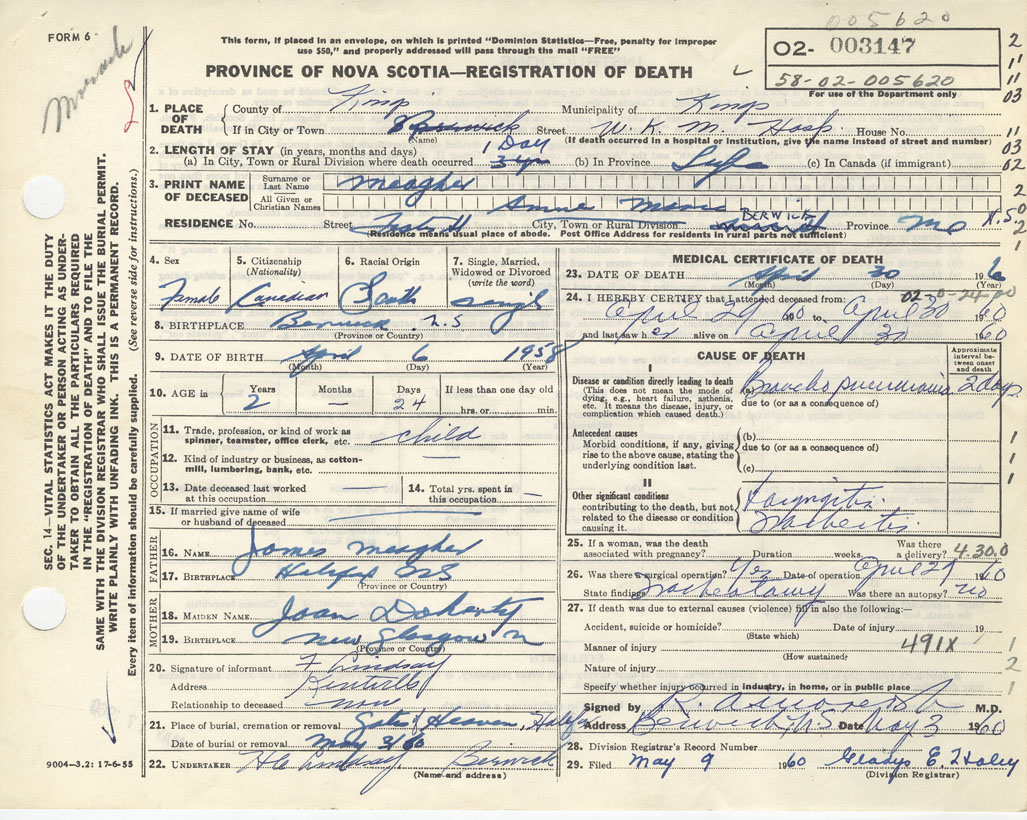 005620
FORM 6
This form, if placed in an envelope, on which is printed "Dominion Statistics—Free, penalty for improper
use $50," and properly addressed will pass through the mail "FREE"
O2- 003147
58-02-005620
For use of the Department only
PROVINCE OF NOVA SCOTIA—REGISTRATION OF DEATH
1. PLACE OF DEATH County of Kings Municipality of Kings
If in City or Town Berwick Street W. K. M. Hosp. House No.
(Name) (If death occurred in a hospital or institution, give the name instead of street and number)
2. LENGTH OF STAY (in years, months and days) 1 Day
(a) In City, Town or Rural Division where death occurred (b) In Province Life (c) In Canada (if immigrant)
3. PRINT NAME OF DECEASED Surname or Last Name Meagher
All Given or Christian Names Anne Marie
BERWICK N.S
RESIDENCE No. Street City, Town or Rural Division Province
(Residence means usual place of abode. Post Office Address for residents in rural parts not sufficient)
4. Sex Female
5. Citizenship (Nationality) Canadian
6. Racial Origin Scotch
7. Single, Married, Widowed or Divorced (write the word) single
8. BIRTHPLACE Berwick N.S
(Province or Country)
9. DATE OF BIRTH April 6 1958
(Month) (Day) (Year)
10. AGE in Years 2 Months — Days 24 If less than one day old hrs. or min.
OCCUPATION
11. Trade, profession, or kind of work as spinner, teamster, office clerk, etc. child
12. Kind of industry or business, as cotton-mill, lumbering, bank, etc. —
13. Date deceased last worked at this occupation — 14. Total yrs. spent in this occupation —
15. If married give name of wife or husband of deceased —
FATHER
16. NAME James Meagher
17. BIRTHPLACE Halifax NS
(Province or Country)
MOTHER
18. MAIDEN NAME Joan Doherty
19. BIRTHPLACE New Glasgow
(Province or Country)
20. Signature of informant F Lindsay
Address Kentville
Relationship to deceased none
21. Place of burial, cremation or removal Gate of Heaven, Halifax
Date of burial or removal May 3/60
22. UNDERTAKER Lindsay Berwick
(Name and address)
MEDICAL CERTIFICATE OF DEATH
23. DATE OF DEATH April 30 196
(Month) (Day) (Year)
02-0-24-00
24. I HEREBY CERTIFY that I attended deceased from:
April 29 1960 to April 30 1960
and last saw her alive on April 30 1960
CAUSE OF DEATH
Approximate interval between onset and death
I
Disease or condition directly leading to death
(This does not mean the mode of dying, e.g., heart failure, asthenia, etc. It means the disease, injury, or complication which caused death.)
(a) Broncho pneumonia 2 days
due to (or as a consequence of)
Antecedent causes
Morbid conditions, if any, giving rise to the above cause, stating the underlying condition last.
(b)
due to (or as a consequence of)
(c)
II
Other significant conditions contributing to the death, but not related to the disease or condition causing it.
Laryngitis
Tracheitis
25. If a woman, was the death associated with pregnancy? Duration weeks. Was there a delivery? 4.30.0
26. Was there a surgical operation? Yes Date of operation April 29 1960
State findings Tracheotomy Was there an autopsy? no
27. If death was due to external causes (violence) fill in also the following:—
Accident, suicide or homicide? Date of injury 19
(State which)
Manner of injury 491X
(How sustained)
Nature of injury
Specify whether injury occurred in industry, in home, or in public place
Signed by M.D.
Address Berwick, N.S Date May 3 1960
28. Division Registrar's Record Number
29. Filed May 9 1960 Gladys E.
(Division Registrar)
SEC. 14—VITAL STATISTICS ACT MAKES IT THE DUTY
OF THE UNDERTAKER OR PERSON ACTING AS UNDER-
TAKER TO OBTAIN ALL THE PARTICULARS REQUIRED
IN THE "REGISTRATION OF DEATH" AND TO FILE THE
SAME WITH THE DIVISION REGISTRAR WHO SHALL ISSUE THE BURIAL PERMIT.
WRITE PLAINLY WITH UNFADING INK. THIS IS A PERMANENT RECORD.
Every item of information should be carefully supplied. (See reverse side for instructions.)
9004—3.2: 17-6-55
2
11
03
11
03
02
2
2
1
1
1
1
1
2
1